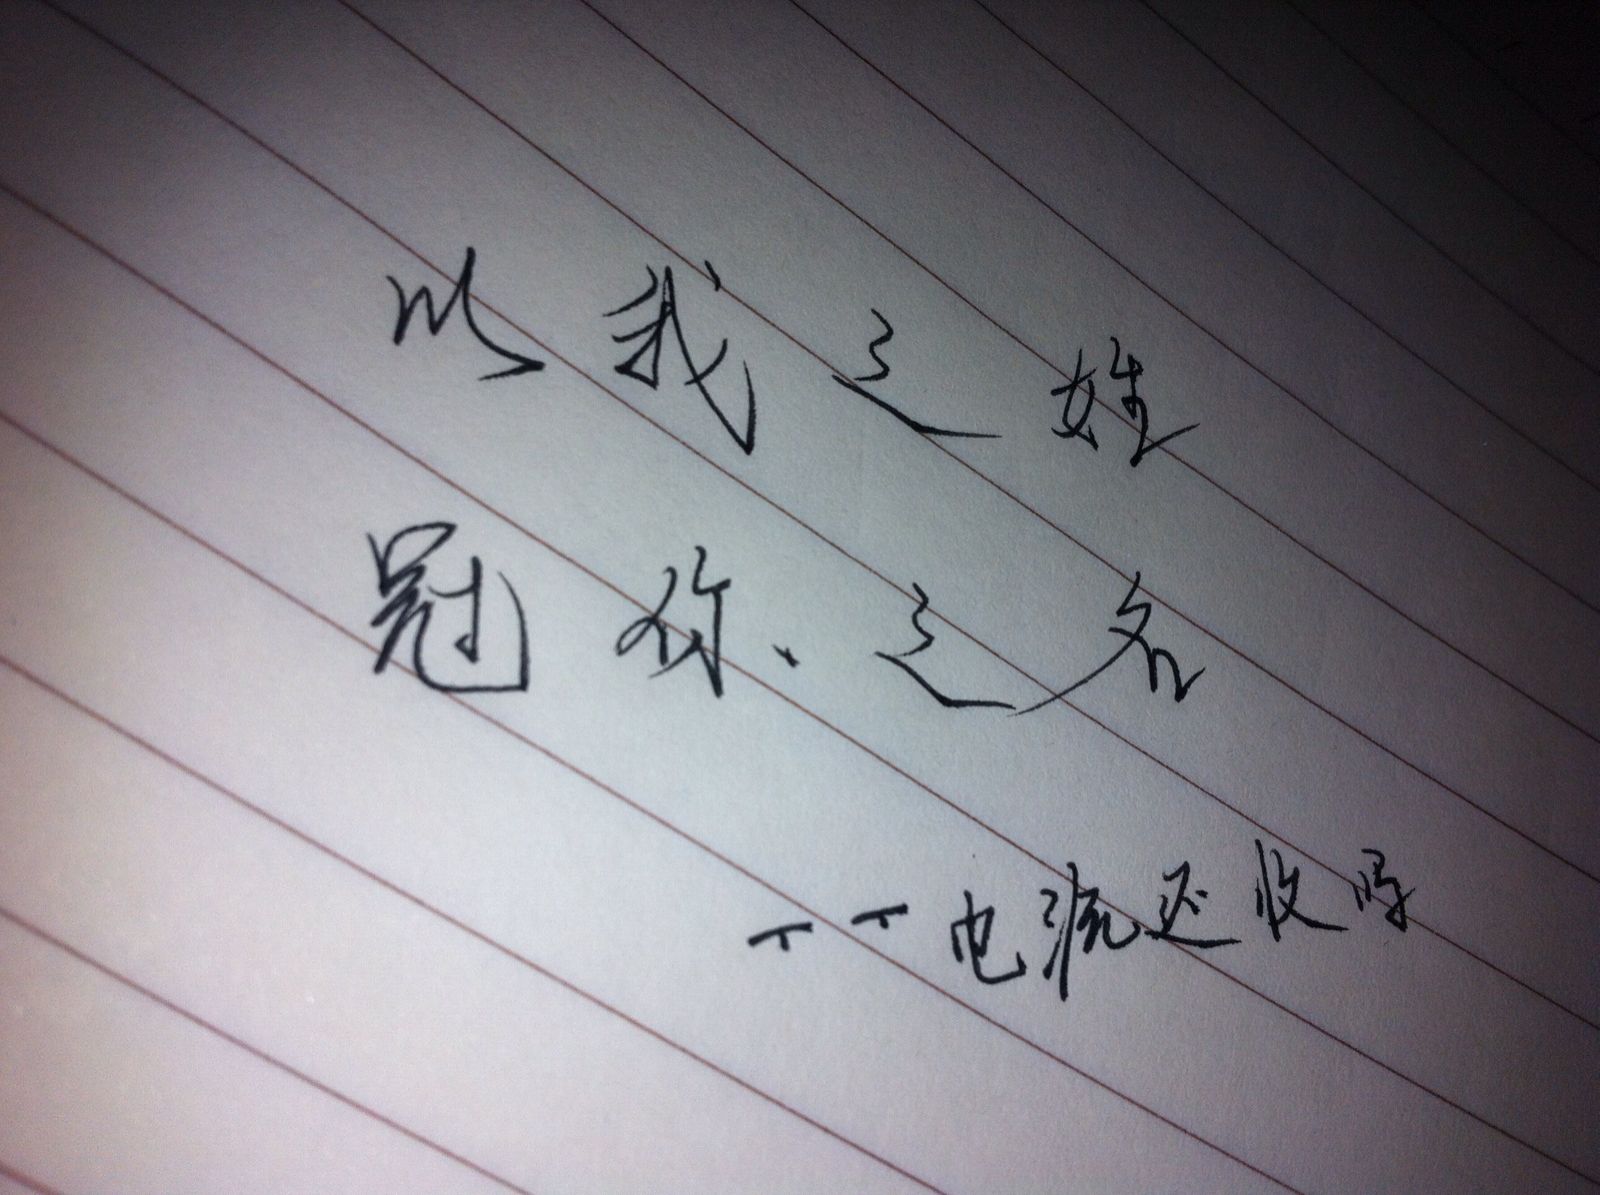 以我之姓
冠你、之名
——电流还收